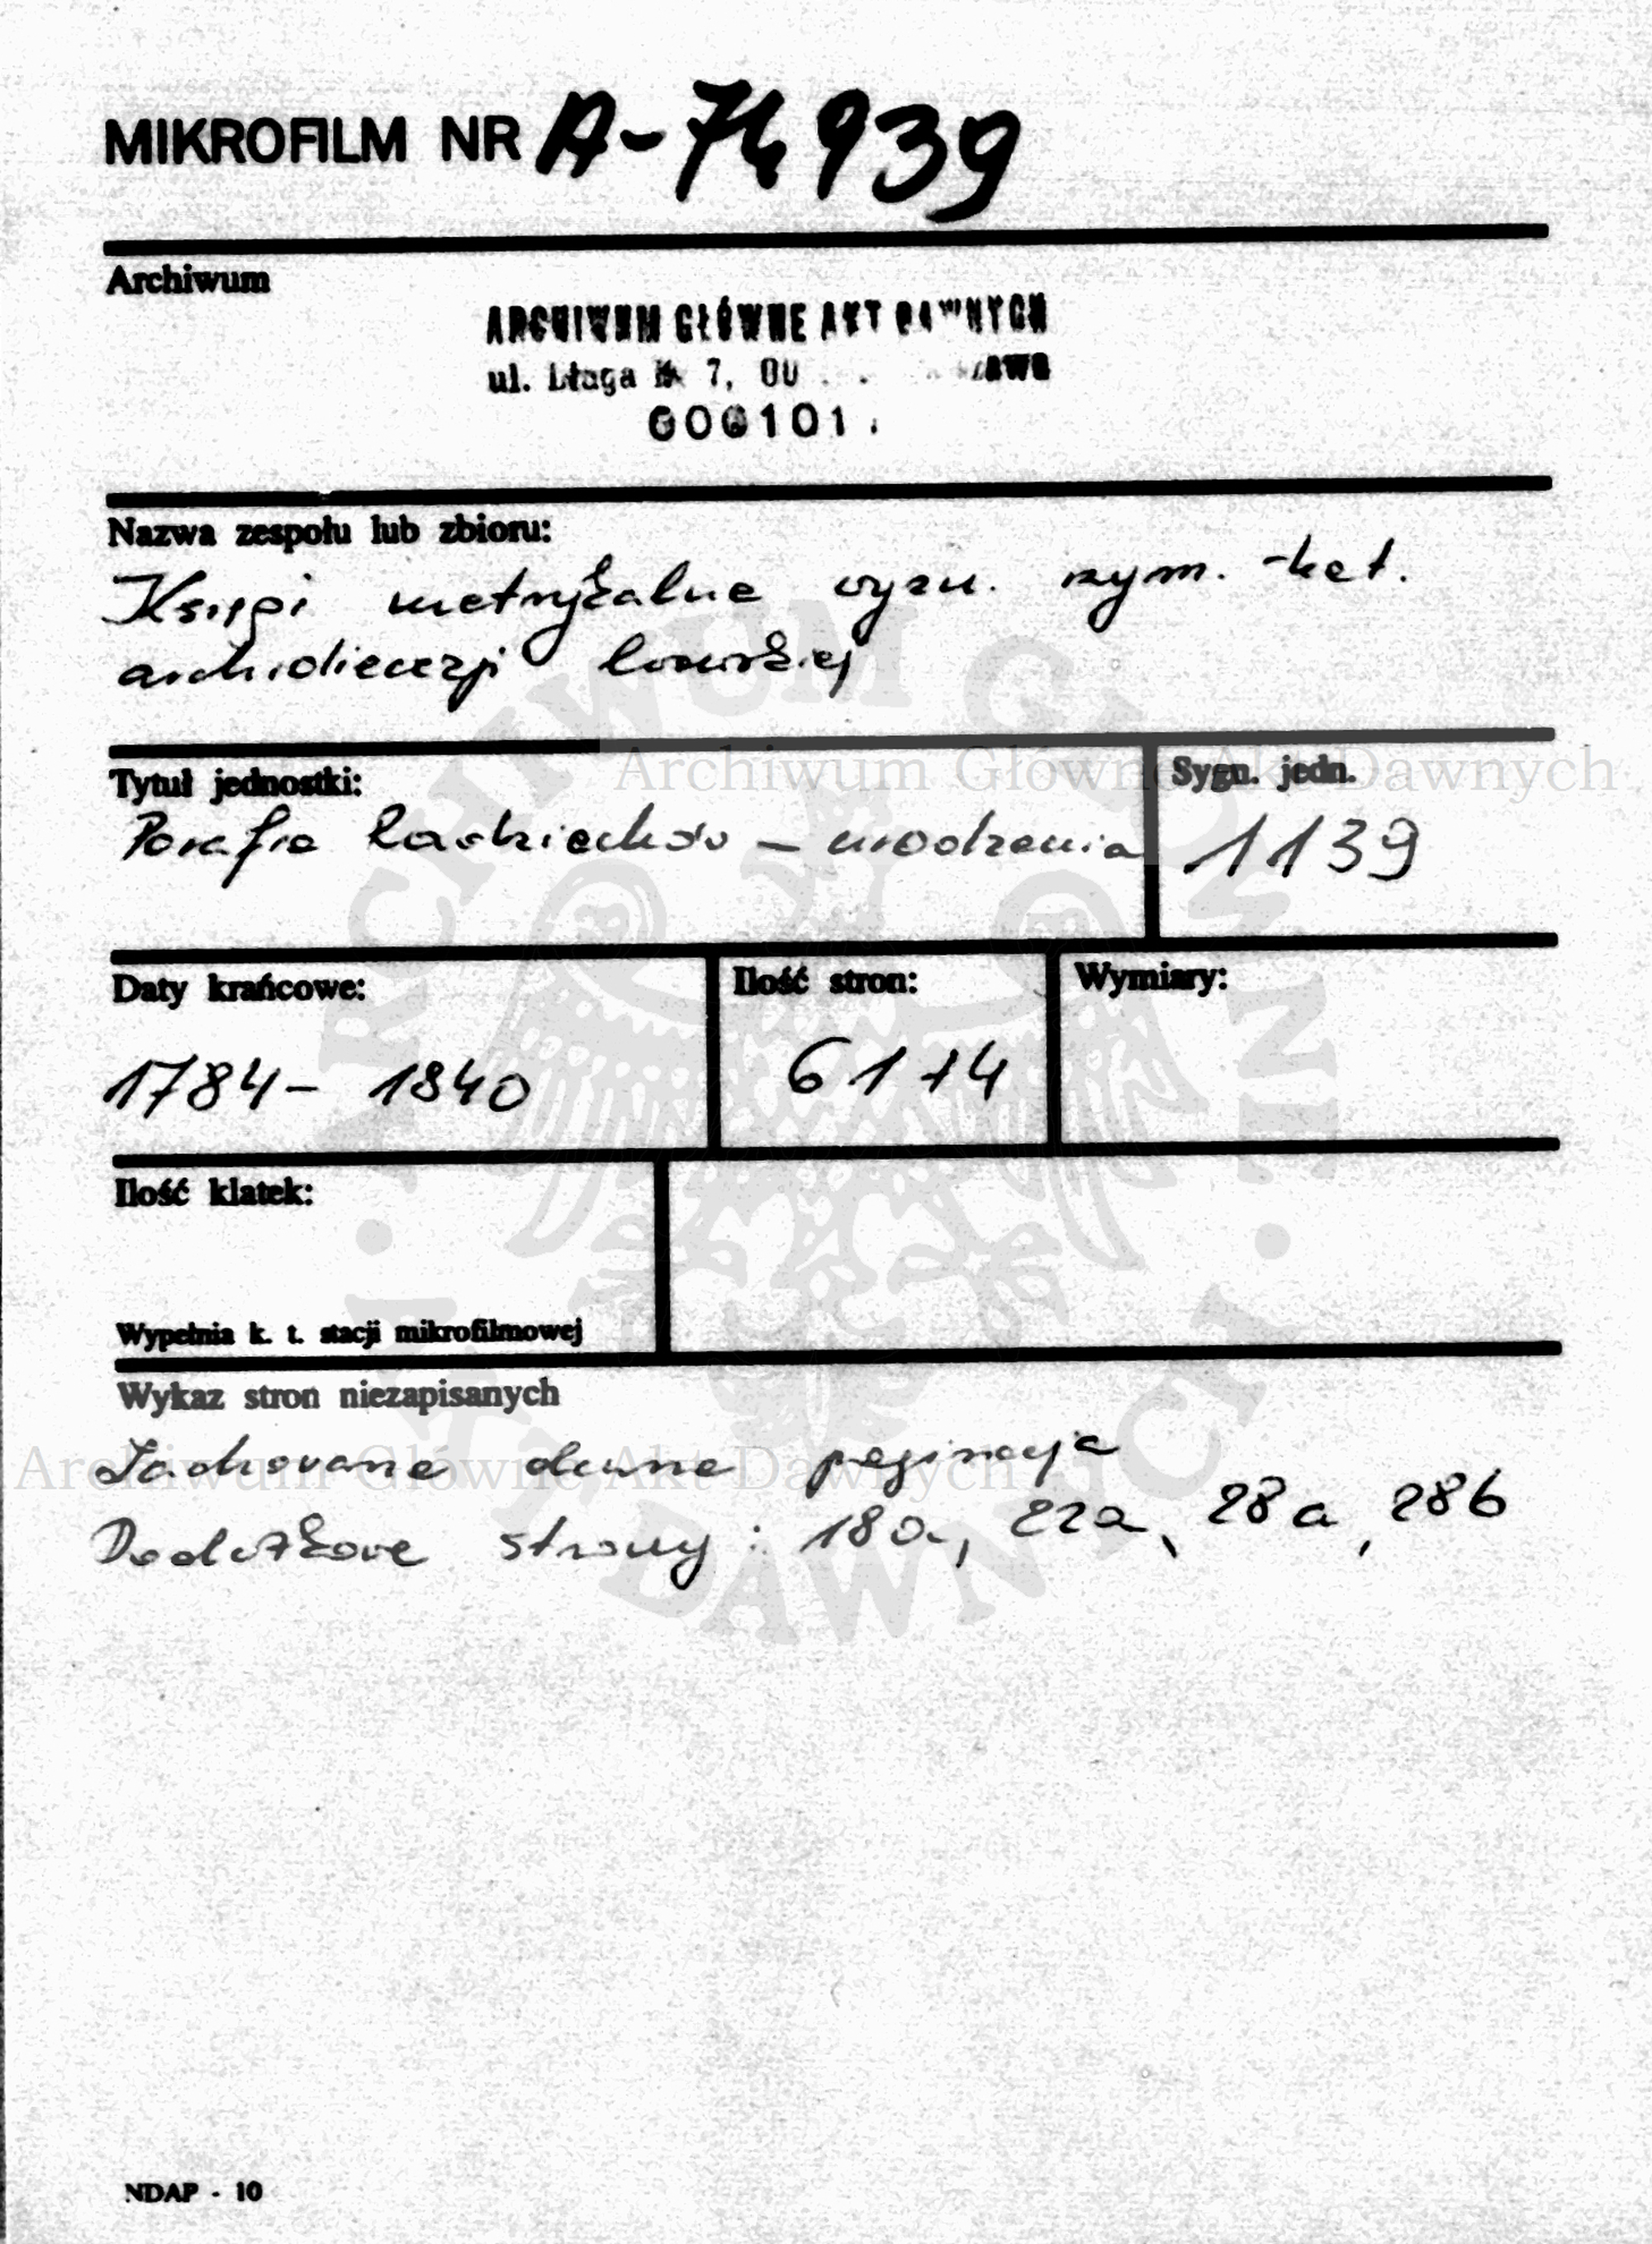 MIKROFILM NR A-74939
Archiwum
ARCHIWUM GŁÓWNE AKT DAWNYCH
ul. Długa 7, 00
000101
Nazwa zespołu lub zbioru:
Księgi metrykalne wyzn. rzym.-kat.
archidiecezji lwowskiej
Tytuł jednostki:
Sygn. jedn.
Parafia Radziechów – urodzenia
1139
Daty krańcowe:
Ilość stron:
Wymiary:
1784 – 1840
61+4
Ilość klatek:
Wypełnia k. t. stacji mikrofilmowej
Wykaz stron niezapisanych
Zachowano dawną paginację
Dodatkowe strony: 18a, 22a, 28a, 28b
NDAP - 10
Archiwum Główne Akt Dawnych
Archiwum Główne Akt Dawnych
ARCHIWUM GŁÓWNE AKT DAWNYCH